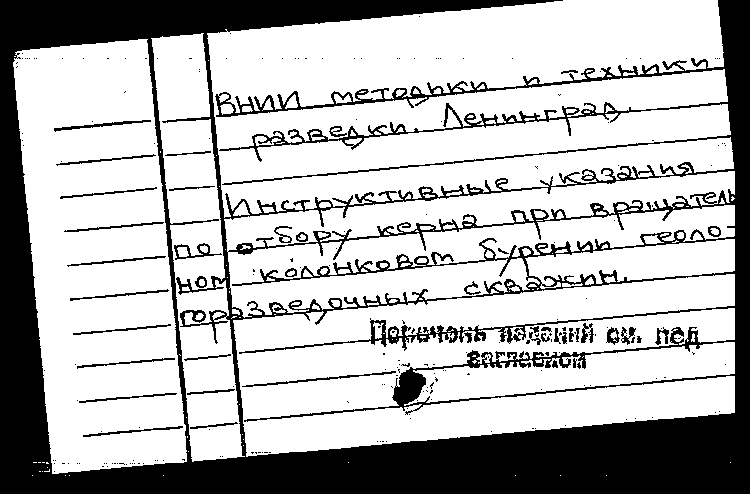 ВНИИ методики и техники
разведки. Ленинград.
Инструктивные указания
по отбору керна при вращатель
ном колонковом бурении геоло-
горазведочных скважин.
Перечень изданий см. под
заглавием